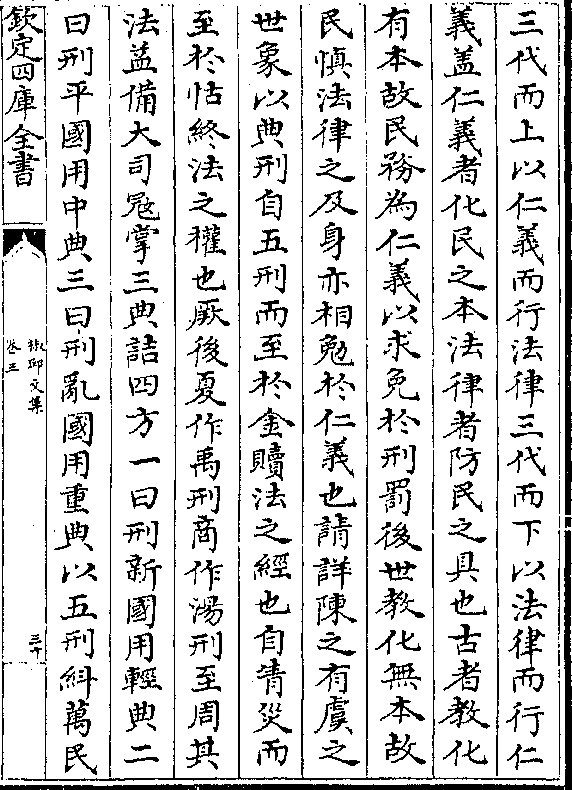 三代而上以仁義而行法律三代而下以法律而行仁
義盖仁義者化民之本法律者防民之具也古者教化
有本故民務為仁義以求免於刑罰後世教化無本故
民慎法律之及身亦相勉於仁義也請詳陳之有虞之
世象以典刑自五刑而至於金贖法之經也自眚災而
至於怙終法之權也厥後夏作禹刑商作湯刑至周其
法益備大司冦掌三典詰四方一曰刑新國用輕典二
曰刑平國用中典三曰刑亂國用重典以五刑糾萬民
欽定四庫全書
椒邱文集
卷三
三十